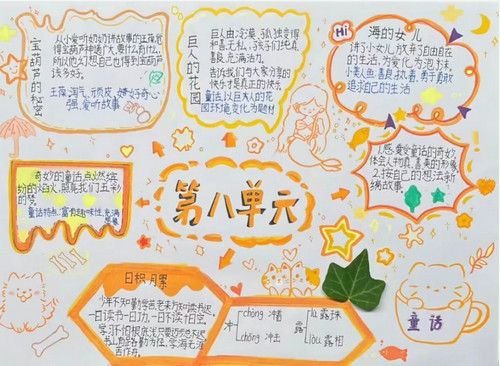 宝葫芦的秘密
从小爱听奶奶讲故事的王葆觉
得宝葫芦神通广大,要什么有什么,
所以他幻想自己也得到宝葫芦
该多好。
王葆:淘气、顽皮、好奇心
强、爱听故事
巨人的花园
巨人由:冷漠、孤独变得
和善无私,孩子们纯真
良、充满活力。
告诉我们与大家分享的
快乐才是真正的快乐。
童话,以巨大人的花
园环境变化为题材
Hi
海的女儿
讲了小女儿放弃了自由自在
的生活,为爱化为泡沫。
小美人鱼:善良、执着、勇于
追求自己的生活
奇妙的童话点燃缤
纷的焰火,照亮我们五彩
的梦
童话特点:富有趣味性,充满
想象
第八单元
1.感受童话的奇妙,
体会人物真、善美的形象
2.按自己的想法新
编故事
日积月累
少年不知勤学苦,老来方知读书迟
一日读书一日功,一日不读十日空
学习不怕根底浅,只要迈步总不迟
书山有路勤为径,学海无涯
苦作舟。
冲
chòng 冲着
chōng 冲击
露
lù 露珠
lòu 露相
童话